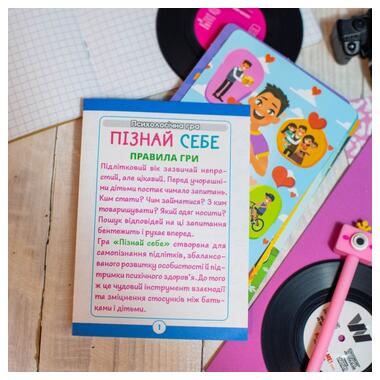 Психологічна гра
ПІЗНАЙ СЕБЕ
ПРАВИЛА ГРИ
Підлітковий вік зазвичай непро-
стий, але цікавий. Перед учорашні-
ми дітьми постає чимало запитань.
Ким стати? Чим займатися? З ким
товаришувати? Який одяг носити?
Пошук відповідей на ці запитання
бентежить і рухає вперед.
Гра «Пізнай себе» створена для
самопізнання підлітків, збалансо-
ваного розвитку особистості й під-
тримки психічного здоров'я. До того
ж це чудовий інструмент взаємодії
та зміцнення стосунків між бать-
ками і дітьми.
1